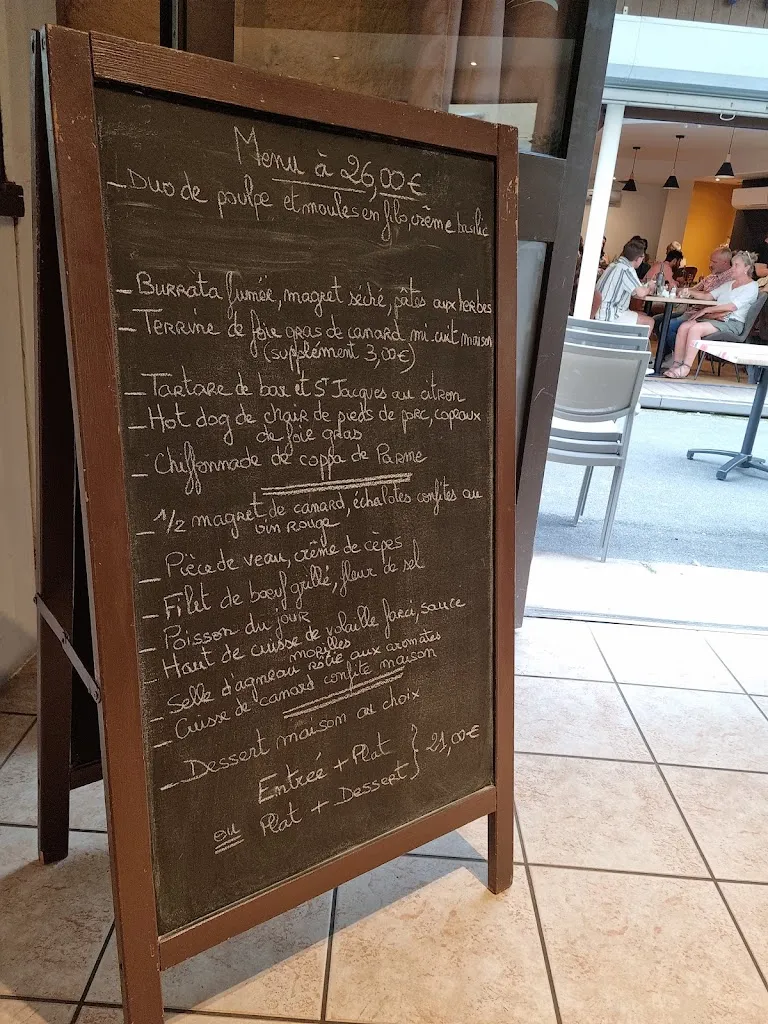 Menu à 26,00€
- Duo de poulpe et moules en filo, crème basilic
- Burrata fumée, magret séché, pâtes aux herbes
- Terrine de foie gras de canard mi cuit maison
(supplément 3,00€)
- Tartare de bar et St Jacques au citron
- Hot dog de chair de pieds de porc, copeaux
de foie gras
- Chiffonnade de coppa de Parme
- 1/2 magret de canard, échalotes confites au
vin rouge
- Pièce de veau, crème de cèpes
- Filet de bœuf grillé, fleur de sel
- Poisson du jour
- Haut de cuisse de volaille farci, sauce
morilles
- Selle d'agneau rôtie aux aromates
- Cuisse de canard confite maison
- Dessert maison au choix
Entrée + Plat } 21,00€
ou Plat + Dessert